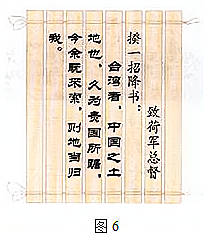 致荷军总督
揆一招降书：
台湾者，中国之土
地也，久为贵国所踞，
今余既来索，则地当归
我。
图 6